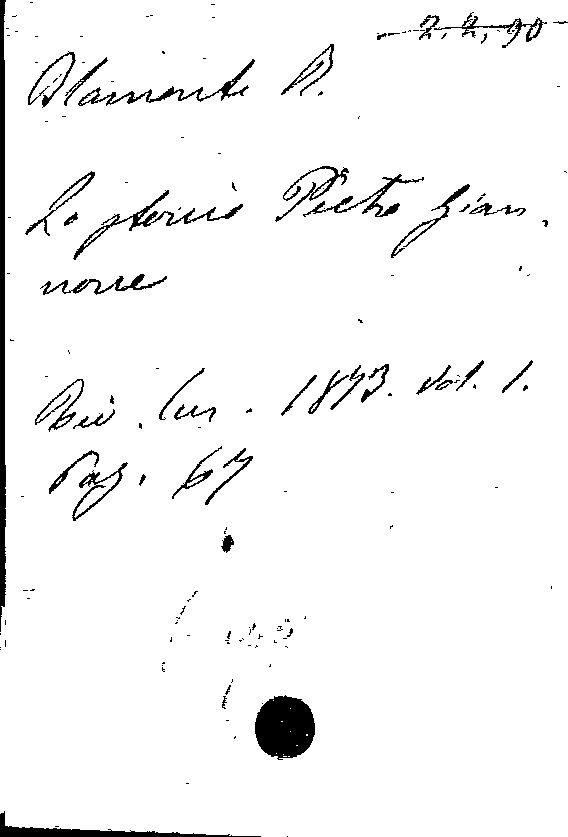 2.2.90
Blamonte R.
Lo storico Pietro Gian-
none
Riv. Eur. 1873. Vol. 1.
Pag. 67